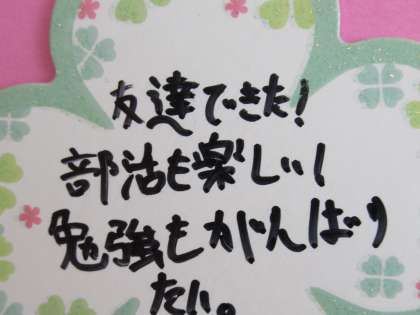 友達できた!
部活も楽しい!
勉強もがんばり
たい。